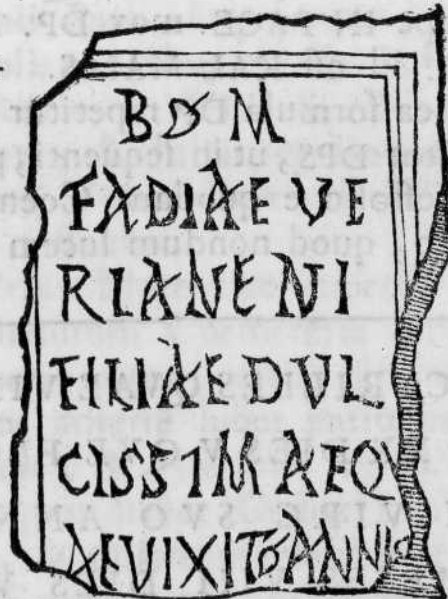 B D M
FADIAE VE
RIANE NI
FILIAE DVL
CISSIMAE QV
AE VIXIT ANNIS